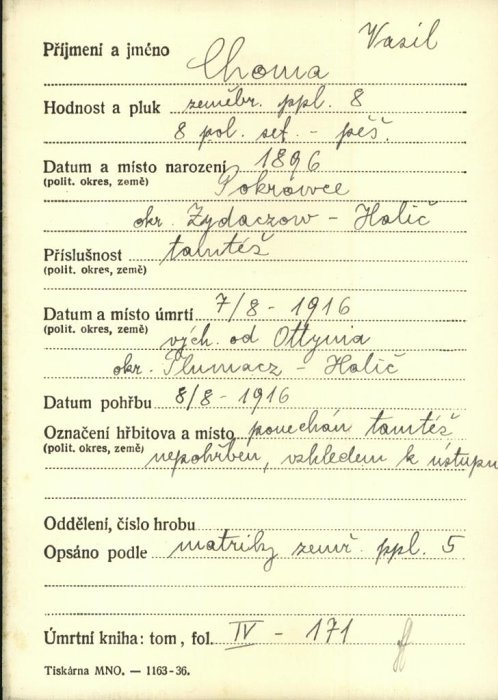 Vasil
Příjmení a jméno Choma
Hodnost a pluk zeměbr. ppl. 8
8 pol. set. - pěš.
Datum a místo narození 1896
(polit. okres, země) Pokrowce
okr. Zydaczow - Halič
Příslušnost tamtéž
(polit. okres, země)
Datum a místo úmrtí 7/8 - 1916
(polit. okres, země) vých. od Ottynia
okr. Tlumacz - Halič
Datum pohřbu 8/8 - 1916
Označení hřbitova a místo ponechán tamtéž
(polit. okres, země) nepohřben, vzhledem k ústupu
Oddělení, číslo hrobu
Opsáno podle matriky zemř. ppl. 5
Úmrtní kniha: tom, fol. IV - 171
Tiskárna MNO. — 1163-36.